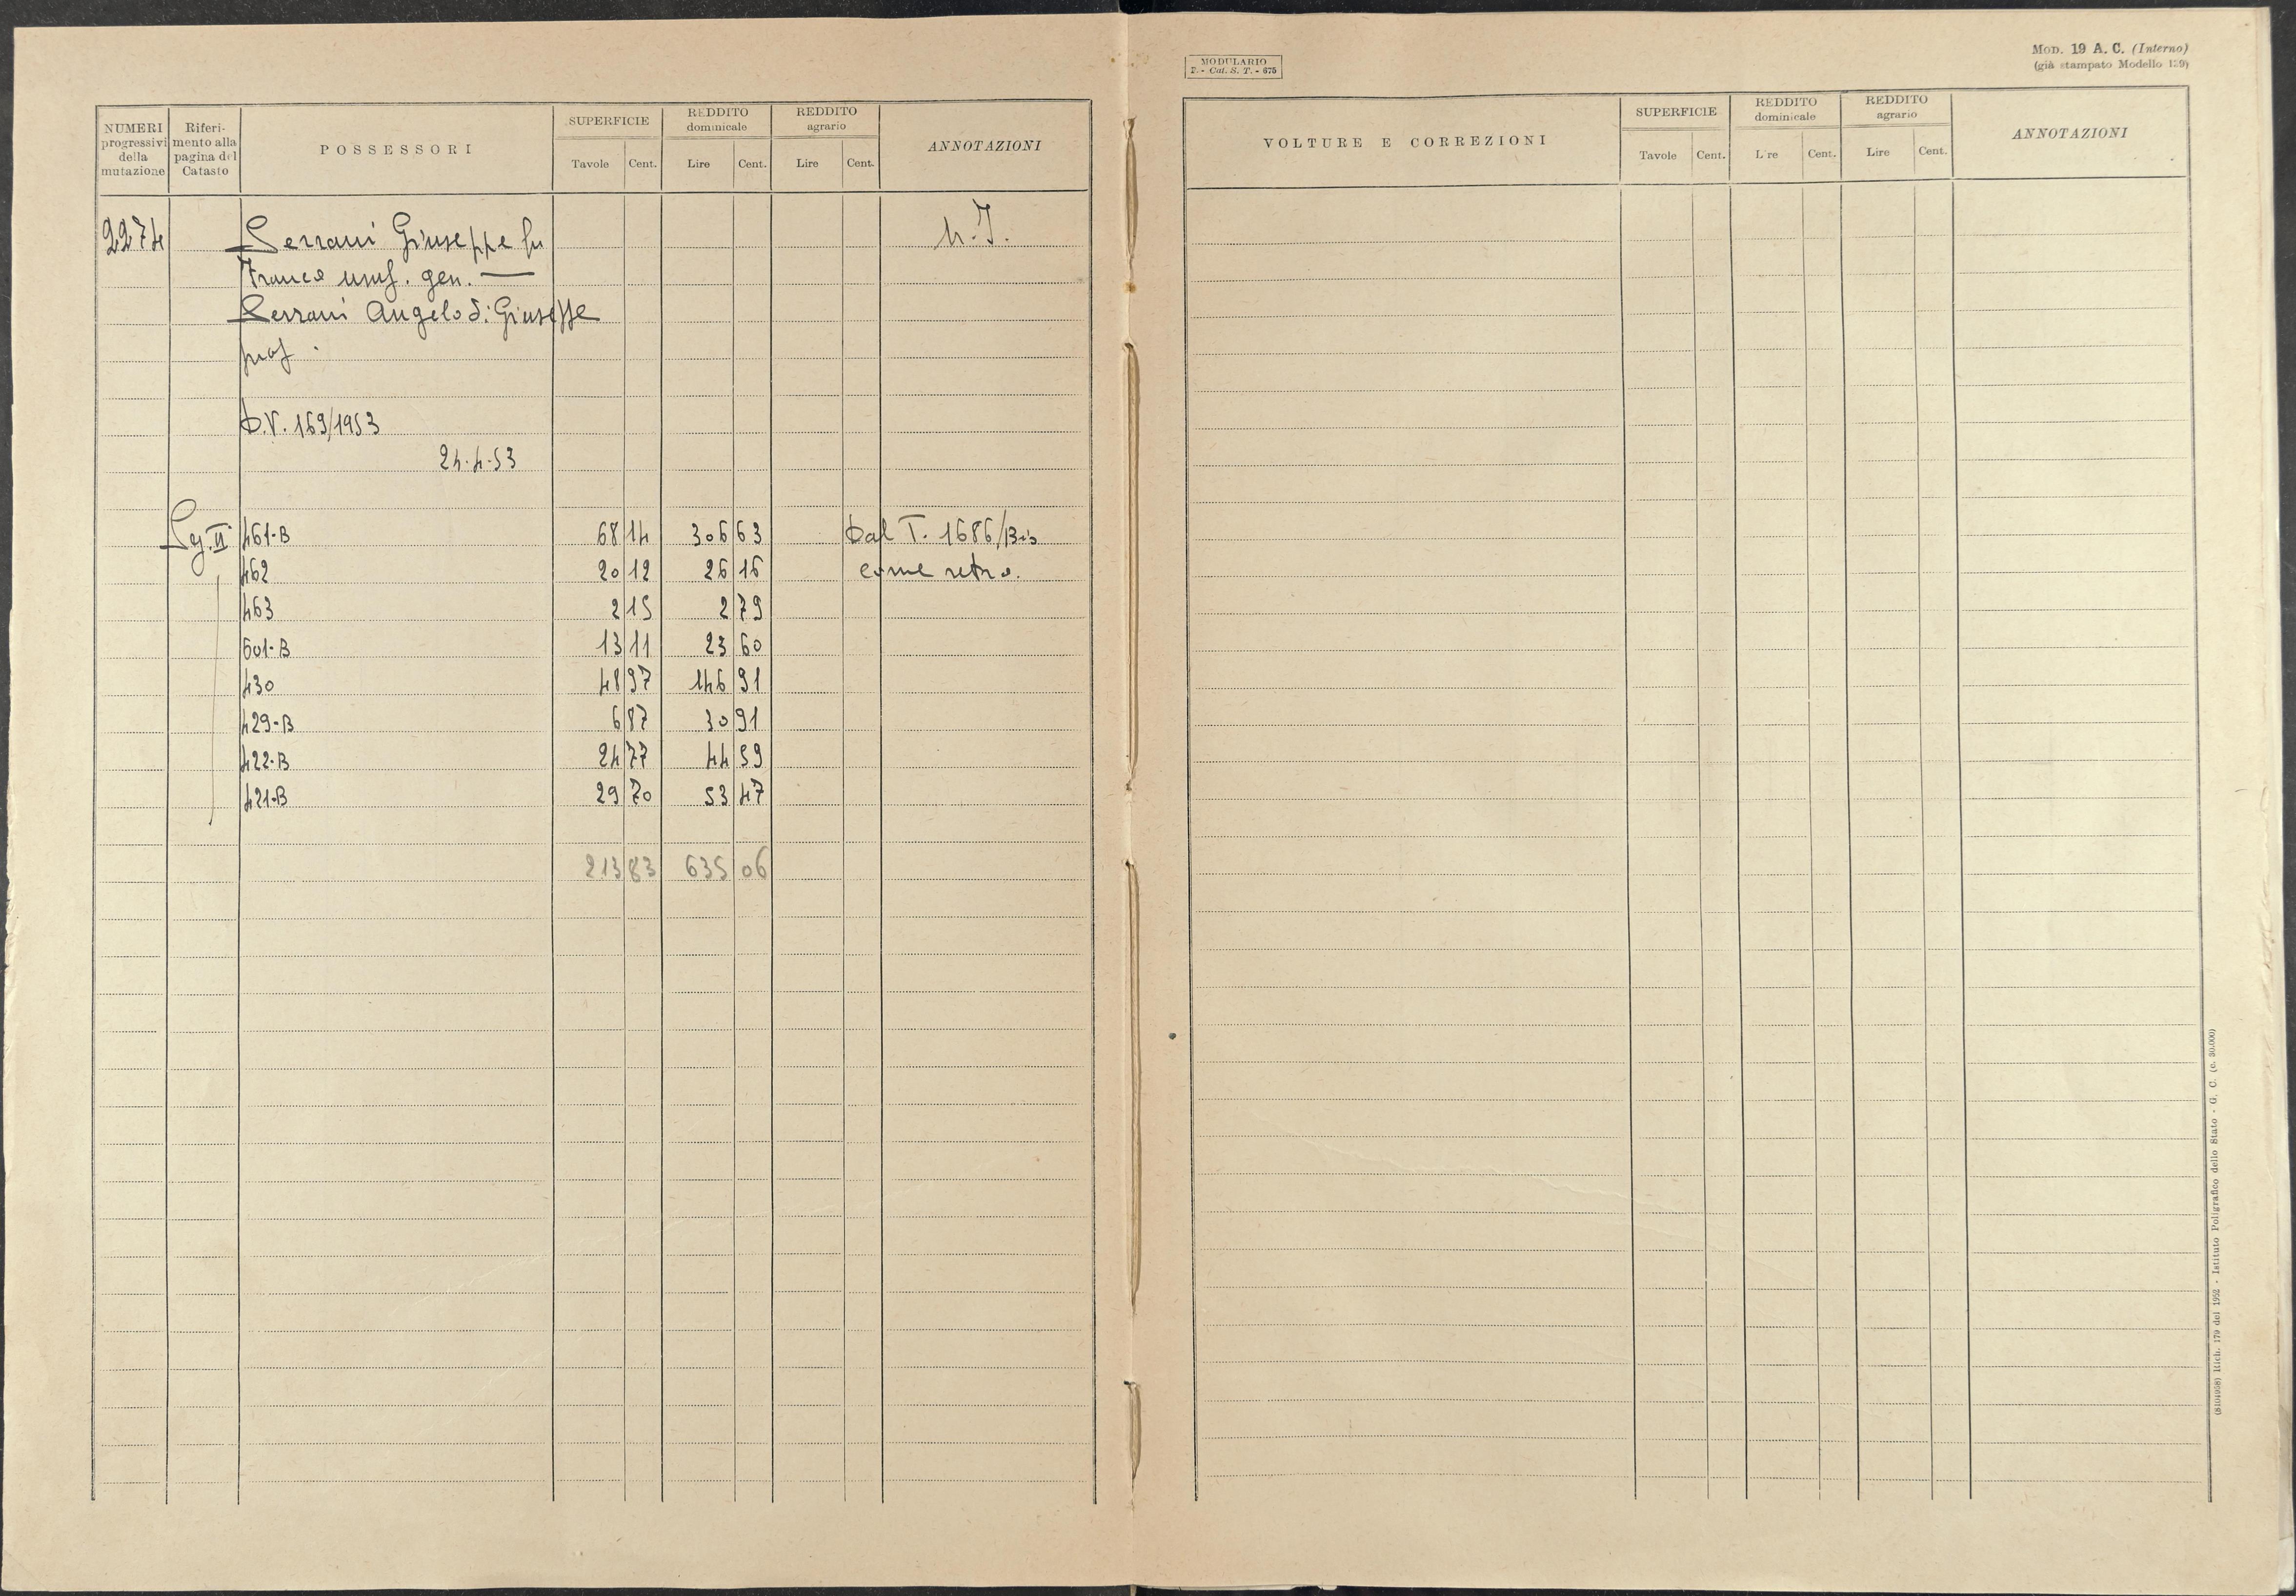 NUMERI progressivi della mutazione
Riferimento alla pagina del Catasto
POSSESSORI
SUPERFICIE
Tavole Cent.
REDDITO dominicale
Lire Cent.
REDDITO agrario
Lire Cent.
ANNOTAZIONI
2274 Serrani Giuseppe fu
Franco usuf. gen. —
Serrani Angelo di Giuseppe
prop.
D.V. 169/1953
24.4.53
Sez. II 461-B 68 14 306 63 Dal T. 1686/Bis
462 20 12 26 16 come retro.
463 2 15 2 79
601-B 13 11 23 60
430 48 97 146 91
429-B 6 87 30 91
422-B 24 77 44 59
421-B 29 70 53 47
213 83 635 06
MODULARIO
F. - Cat. S. T. - 675
Mod. 19 A. C. (Interno)
(già stampato Modello 139)
VOLTURE E CORREZIONI
SUPERFICIE
Tavole Cent.
REDDITO dominicale
Lire Cent.
REDDITO agrario
Lire Cent.
ANNOTAZIONI
Rich. 179 del 1952 - Istituto Poligrafico dello Stato - G. C. (c. 30.000)